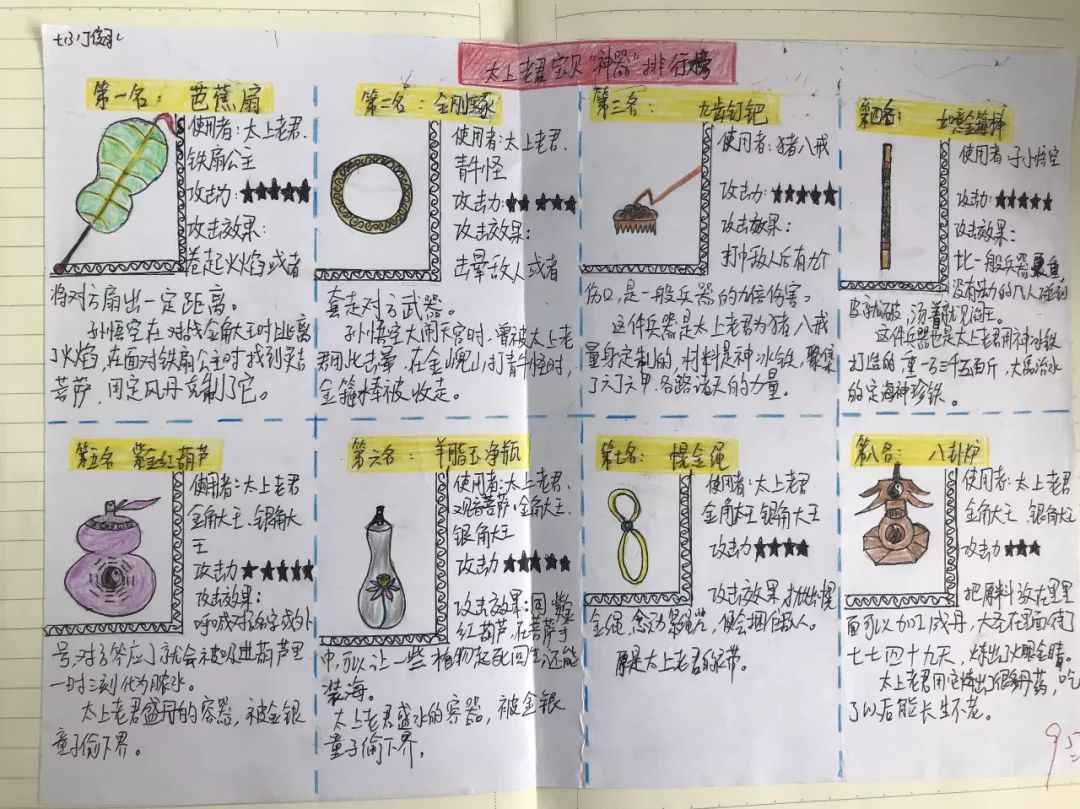 太上老君宝贝"神器"排行榜
第一名： 芭蕉扇
使用者：太上老君、
铁扇公主
攻击力：★★★★★
攻击效果：
卷起火焰或者
将对方扇出一定距离。
孙悟空在对战金角大王时逃离
了火焰，在面对铁扇公主时找到灵吉
菩萨，用定风丹克制了它。
第二名：金刚琢
使用者：太上老君、
青牛怪
攻击力：★★★★★
攻击效果：
击晕敌人或者
套走对方武器。
孙悟空大闹天宫时，曾被太上老
君用此击晕，在金𡷗山打青牛怪时，
金箍棒被收走。
第三名： 九齿钉钯
使用者：猪八戒
攻击力：★★★★★
攻击效果：
打中敌人后有九个
伤口，是一般兵器的九倍伤害。
这件兵器是太上老君为猪八戒
量身定制的，材料是神冰铁，聚集
了六丁六甲、各路诸天的力量。
第四名： 如意金箍棒
使用者：孙悟空
攻击力：★★★★★
攻击效果：
比一般兵器重
没有法力的凡人碰到
皮就破，
这件兵器也是太上老君用神冰铁
打造的，重一万三千五百斤，大禹治水
的定海神珍铁。
第五名 紫金红葫芦
使用者：太上老君
金角大王、银角大
王
攻击力★★★★★
攻击效果：
呼喊对方名字或外
号，对方答应了就会被吸进葫芦里
一时三刻化为脓水。
太上老君盛丹的容器，被金银
童子偷下界。
第六名： 羊脂玉净瓶
使用者：太上老君、
观音菩萨、金角大王、
银角大王
攻击力★★★★★
攻击效果：同紫金
红葫芦，在菩萨手
中，可以让一些植物起死回生，还能
装海。
太上老君盛水的容器，被金银
童子偷下界，
第七名： 幌金绳
使用者：太上老君
金角大王 银角大王
攻击力★★★★
攻击效果：抛出幌
金绳，念动紧绳咒，便会捆住敌人。
原是太上老君的腰带。
第八名： 八卦炉
使用者：太上老君
金角大王 银角大王
攻击力★★★
把原料放在里里
面可以加工成丹，大圣在里面待了
七七四十九天，炼出了火眼金睛。
太上老君用它炼出了很多丹药，吃
了以后能长生不老。
95